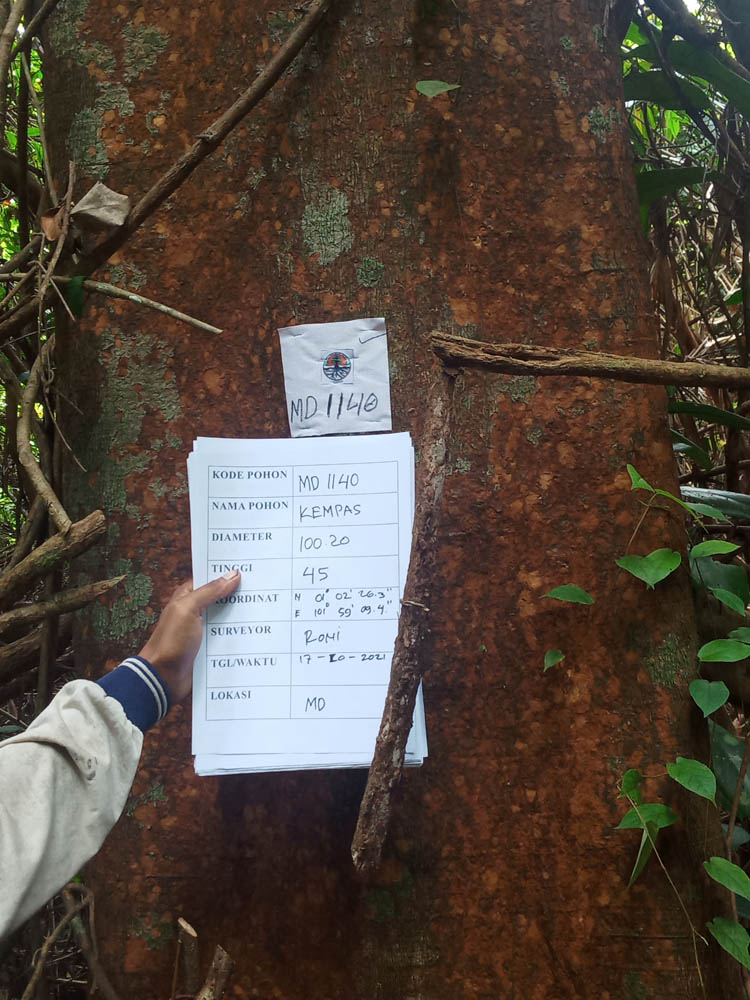 MD 1140
KODE POHON MD 1140
NAMA POHON KEMPAS
DIAMETER 100.20
TINGGI 45
KOORDINAT N 01° 02' 26.3"
E 101° 59' 09.4"
SURVEYOR ROMI
TGL/WAKTU 17-10-2021
LOKASI MD